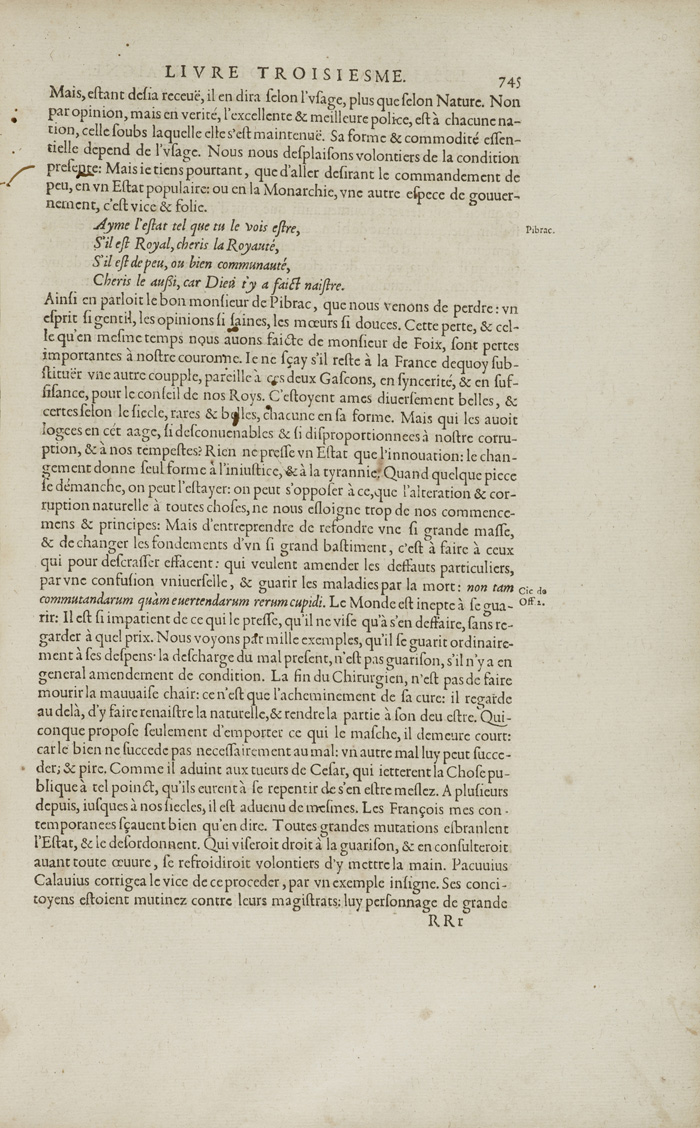 LIVRE TROISIESME. 745
Mais, eſtant deſia receuë, il en dira ſelon l'vſage, plus que ſelon Nature. Non
par opinion, mais en verité, l'excellente & meilleure police, eſt à chacune na-
tion, celle ſoubs laquelle elle s'eſt maintenuë. Sa forme & commodité eſſen-
tielle depend de l'vſage. Nous nous deſplaiſons volontiers de la condition
preſente: Mais ie tiens pourtant, que d'aller deſirant le commandement de
peu, en vn Eſtat populaire: ou en la Monarchie, vne autre eſpece de gouuer-
nement, c'eſt vice & folie.
Ayme l'eſtat tel que tu le vois eſtre, Pibrac.
S'il eſt Royal, cheris la Royauté,
S'il eſt de peu, ou bien communauté,
Cheris le außi, car Dieu t'y a faict naiſtre.
Ainſi en parloit le bon monſieur de Pibrac, que nous venons de perdre: vn
eſprit ſi gentil, les opinions ſi ſaines, les mœurs ſi douces. Cette perte, & cel-
le qu'en meſme temps nous auons faicte de monſieur de Foix, ſont pertes
importantes à noſtre couronne. Ie ne ſçay s'il reſte à la France dequoy ſub-
ſtituër vne autre coupple, pareille à ces deux Gaſcons, en ſyncerité, & en ſuf-
fiſance, pour le conſeil de nos Roys. C'eſtoyent ames diuerſement belles, &
certes ſelon le ſiecle, rares & belles, chacune en ſa forme. Mais qui les auoit
logees en cét aage, ſi deſconuenables & ſi diſproportionnees à noſtre corru-
ption, & à nos tempeſtes? Rien ne preſſe vn Eſtat que l'innouation: le chan-
gement donne ſeul forme à l'iniuſtice, & à la tyrannie. Quand quelque piece
ſe démanche, on peut l'eſtayer: on peut s'oppoſer à ce, que l'alteration & cor-
ruption naturelle à toutes choſes, ne nous eſloigne trop de nos commence-
mens & principes: Mais d'entreprendre de refondre vne ſi grande maſſe,
& de changer les fondements d'vn ſi grand baſtiment, c'eſt à faire à ceux
qui pour deſcraſſer effacent: qui veulent amender les deffauts particuliers,
par vne confuſion vniuerſelle, & guarir les maladies par la mort: non tam Cic de
commutandarum quàm euertendarum rerum cupidi. Le Monde eſt inepte à ſe gua- Off 2.
rir: Il eſt ſi impatient de ce qui le preſſe, qu'il ne viſe qu'à s'en deffaire, ſans re-
garder à quel prix. Nous voyons par mille exemples, qu'il ſe guarit ordinaire-
ment à ſes deſpens: la deſcharge du mal preſent, n'eſt pas guariſon, s'il n'y a en
general amendement de condition. La fin du Chirurgien, n'eſt pas de faire
mourir la mauuaiſe chair: ce n'eſt que l'acheminement de ſa cure: il regarde
au delà, d'y faire renaiſtre la naturelle, & rendre la partie à ſon deu eſtre. Qui-
conque propoſe ſeulement d'emporter ce qui le maſche, il demeure court:
car le bien ne ſuccede pas neceſſairement au mal: vn autre mal luy peut ſucce-
der; & pire. Comme il aduint aux tueurs de Ceſar, qui ietterent la Choſe pu-
blique à tel poinct, qu'ils eurent à ſe repentir de s'en eſtre meſlez. A pluſieurs
depuis, iuſques à nos ſiecles, il eſt aduenu de meſmes. Les François mes con-
temporanees ſçauent bien qu'en dire. Toutes grandes mutations eſbranlent
l'Eſtat, & le deſordonnent. Qui viſeroit droit à la guariſon, & en conſulteroit
auant toute œuure, ſe refroidiroit volontiers d'y mettre la main. Pacuuius
Calauius corrigea le vice de ce proceder, par vn exemple inſigne. Ses conci-
toyens eſtoient mutinez contre leurs magiſtrats: luy perſonnage de grande
RRr